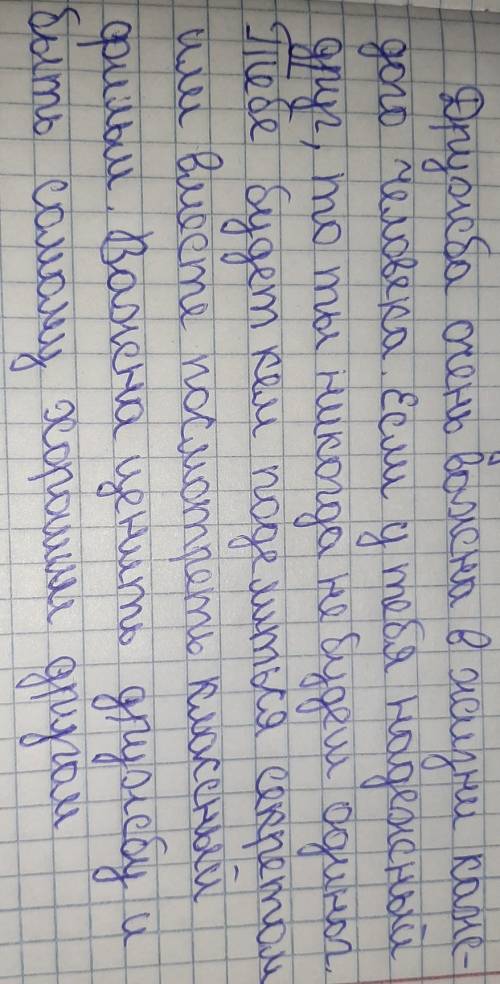 Дружба очень важна в жизни каж-
дого человека. Если у тебя надежный
друг, то ты никогда не будеш одинок.
Тебе будет кем поделиться секретом
или вместе посмотреть классный
фильм. Важна ценить дружбу и
быть самому хорошим другам